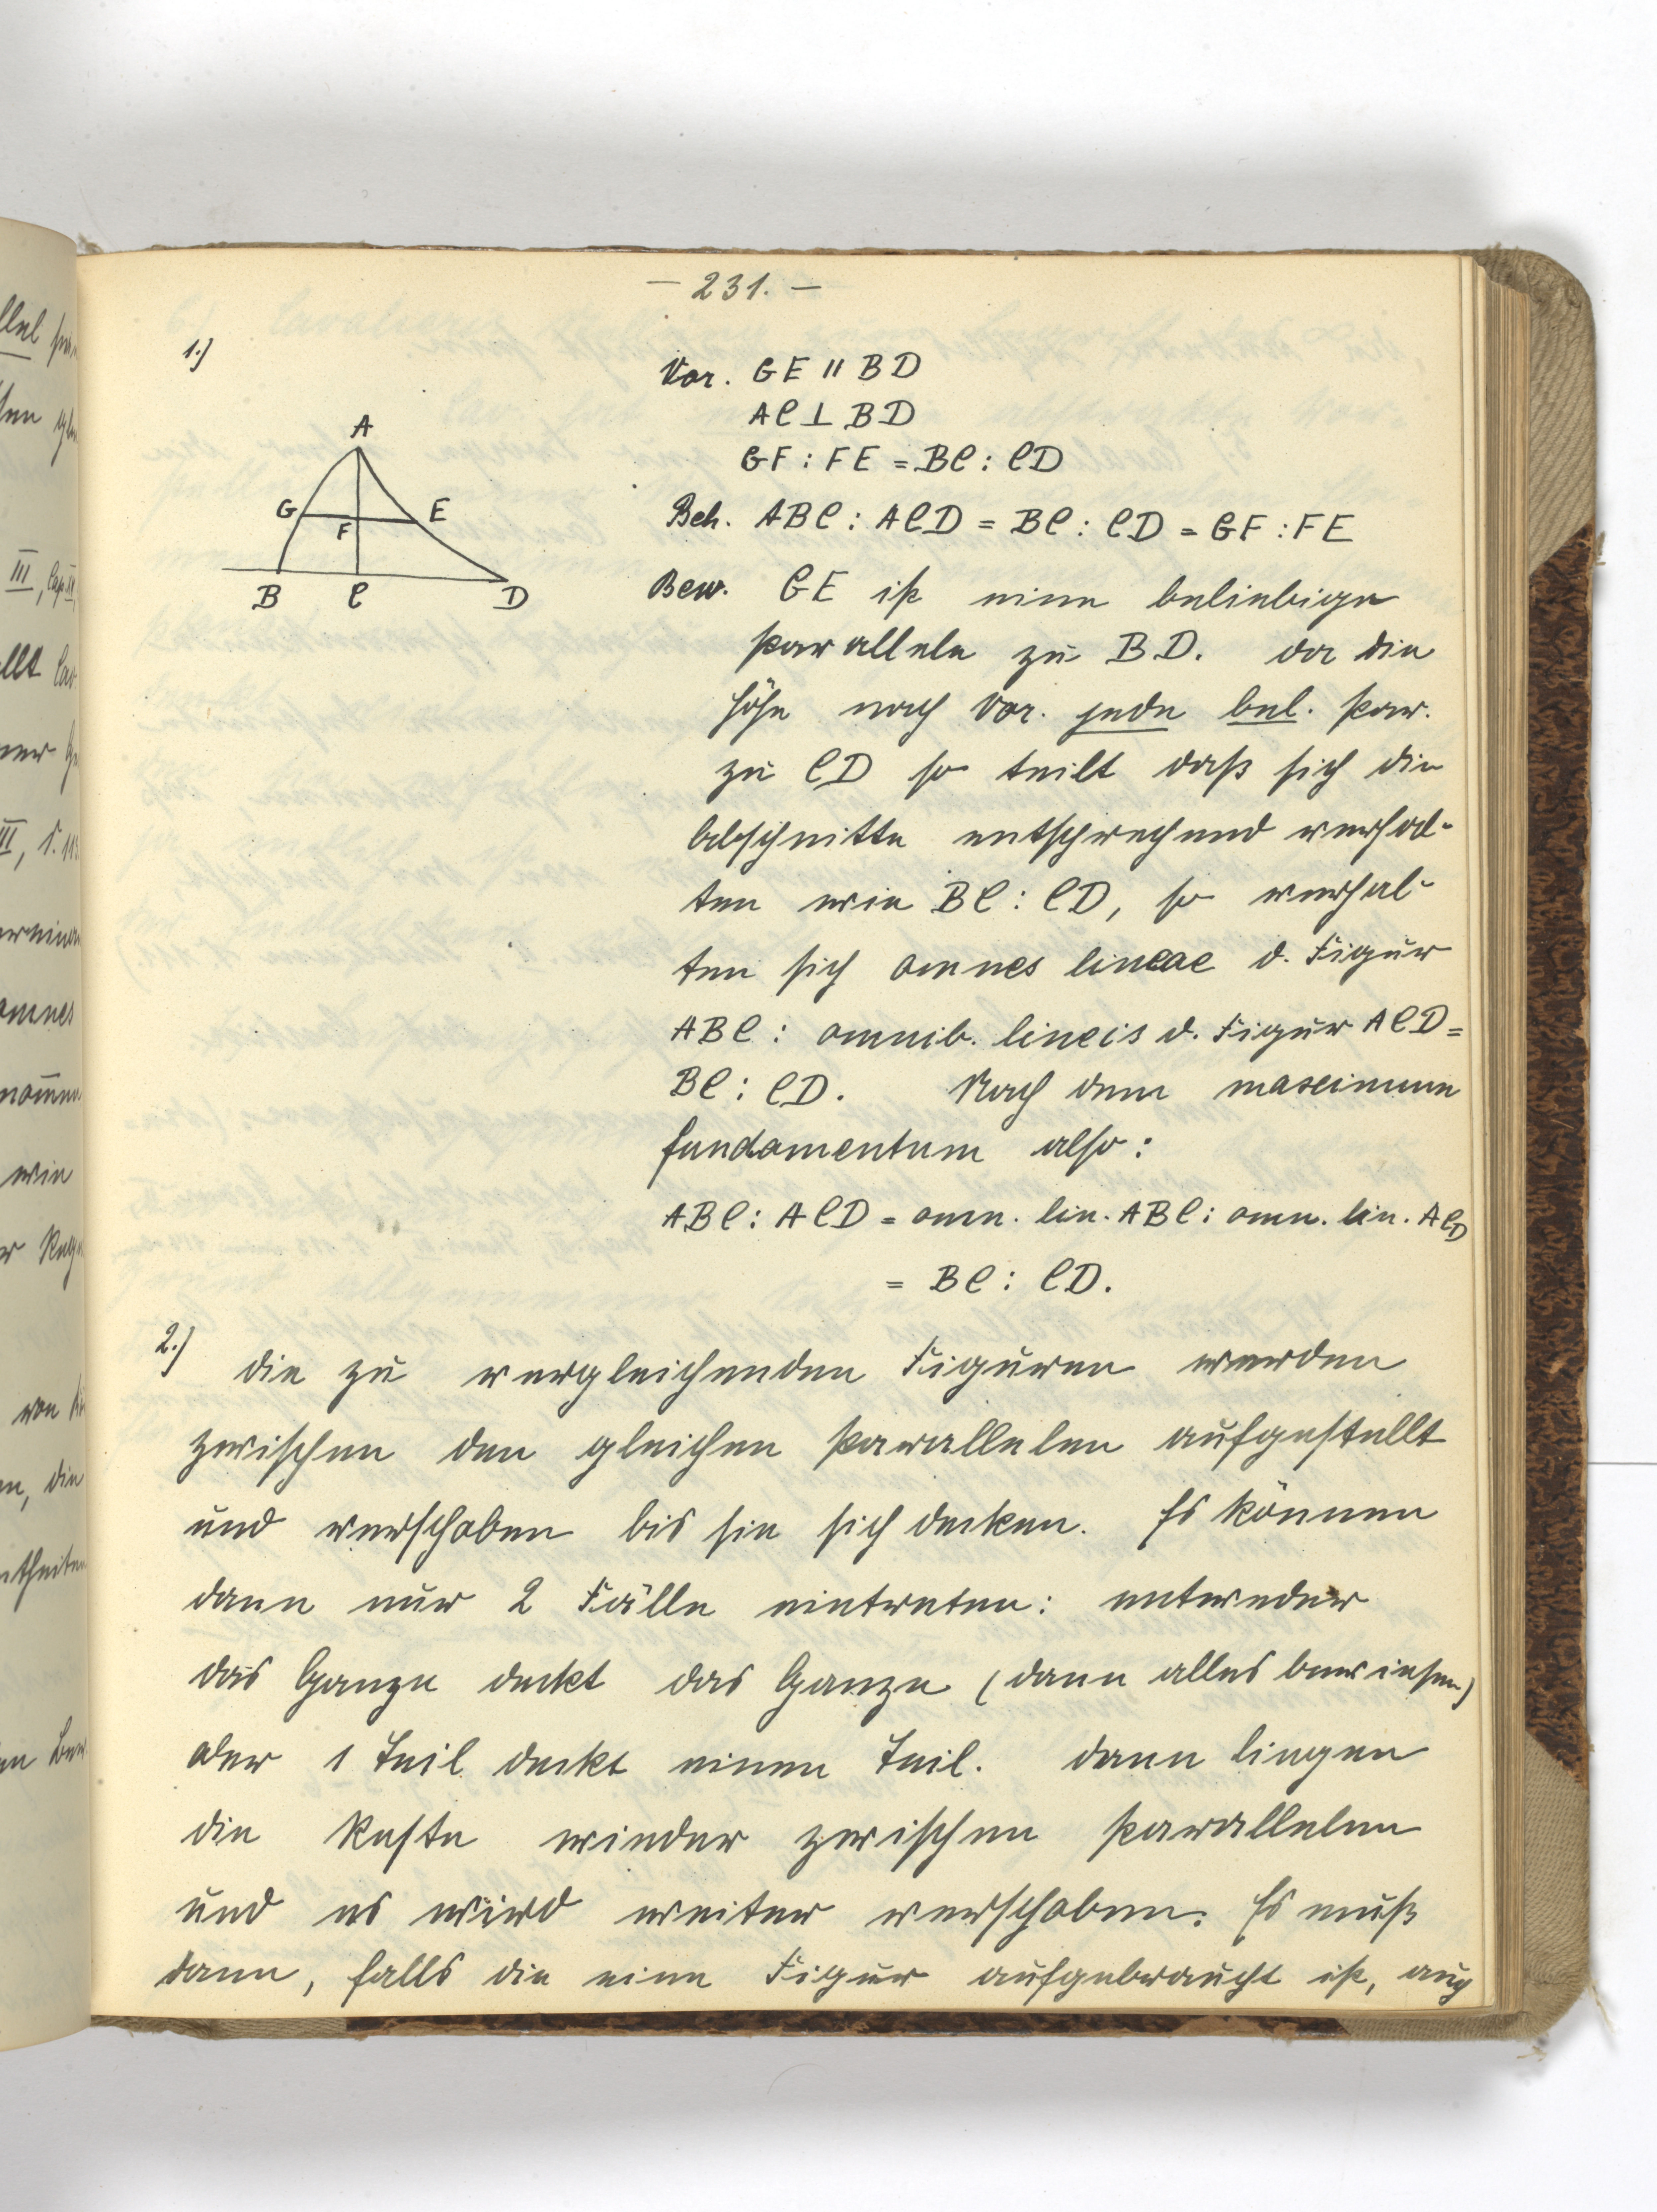 – 231. –
1.)
Vor. GE || BD
AC ⊥ BD
GF : FE = BC : CD
Beh. ABC : ACD = BC : CD = GF : FE
A
G
E
F
B C D
Bew. GE ist eine beliebige
Parallele zu BD. Da die
Höhe nach Vor. jede bel. Par.
zu CD so teilt daß sich die
Abschnitte entsprechend verhal-
ten wie BC : CD, so verhal-
ten sich omnes lineae d. Figur
ABC : omnib. lineis d. Figur ACD =
BC : CD. Nach dem maximum
fundamentum also:
ABC : ACD = omn. lin. ABC : omn. lin. ACD
= BC : CD.
2.)
Die zu vergleichenden Figuren werden
zwischen den gleichen Parallelen aufgestellt
und verschoben bis sie sich decken. Es können
dann nur 2 Fälle eintreten: entweder
das Ganze deckt das Ganze (dann alles bewiesen)
oder 1 Teil deckt einen Teil. Dann liegen
die Reste wieder zwischen Parallelen
und es wird weiter verschoben. Es muß
dann, falls die eine Figur aufgebraucht ist, auch